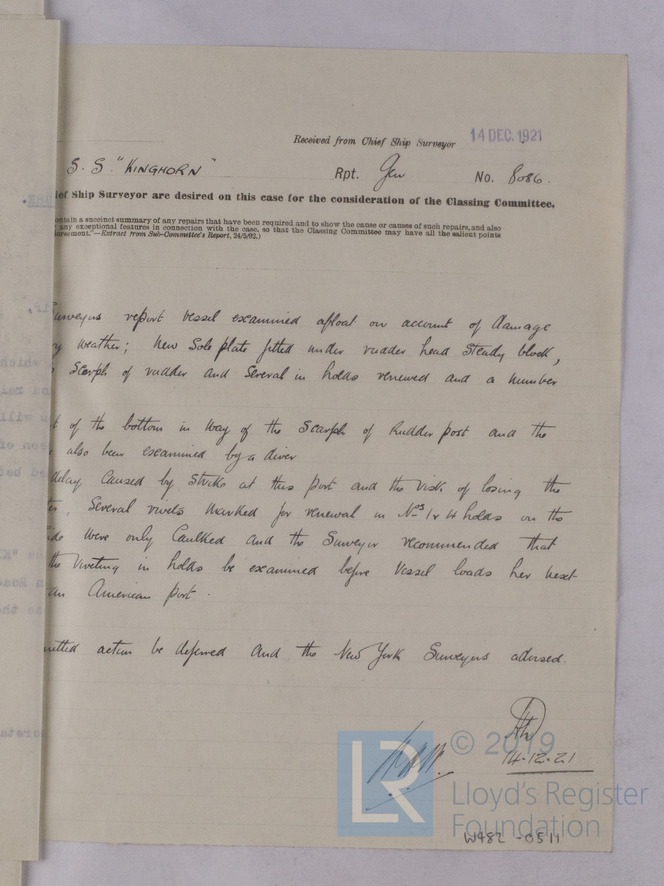 Received from Chief Ship Surveyor 14 DEC. 1921
S.S. "KINGHORN" Rpt. Gen No. 8086.
ief Ship Surveyor are desired on this case for the consideration of the Classing Committee.
ontain a succinct summary of any repairs that have been required and to show the cause or causes of such repairs, and also
any exceptional features in connection with the case, so that the Classing Committee may have all the salient points
dgement."—Extract from Sub-Committee's Report, 24/5/02.)
Surveyors report vessel examined afloat on account of damage
y weather; New Sole plate fitted under rudder head steady block,
scarph of rudder and several in holds renewed and a number
t of the bottom in way of the scarph of Rudder post and the
also been examined by a diver
delay caused by strike at this port and the risk of losing the
ter, Several rivets marked for renewal in Nos 1 & 4 holds on the
ide were only caulked and the Surveyor recommended that
the riveting in holds be examined before vessel loads her next
an American port.
mitted action be deferred and the New York Surveyors advised.
14.12.21
LR
© 2019
Lloyd's Register
Foundation
W982-0511